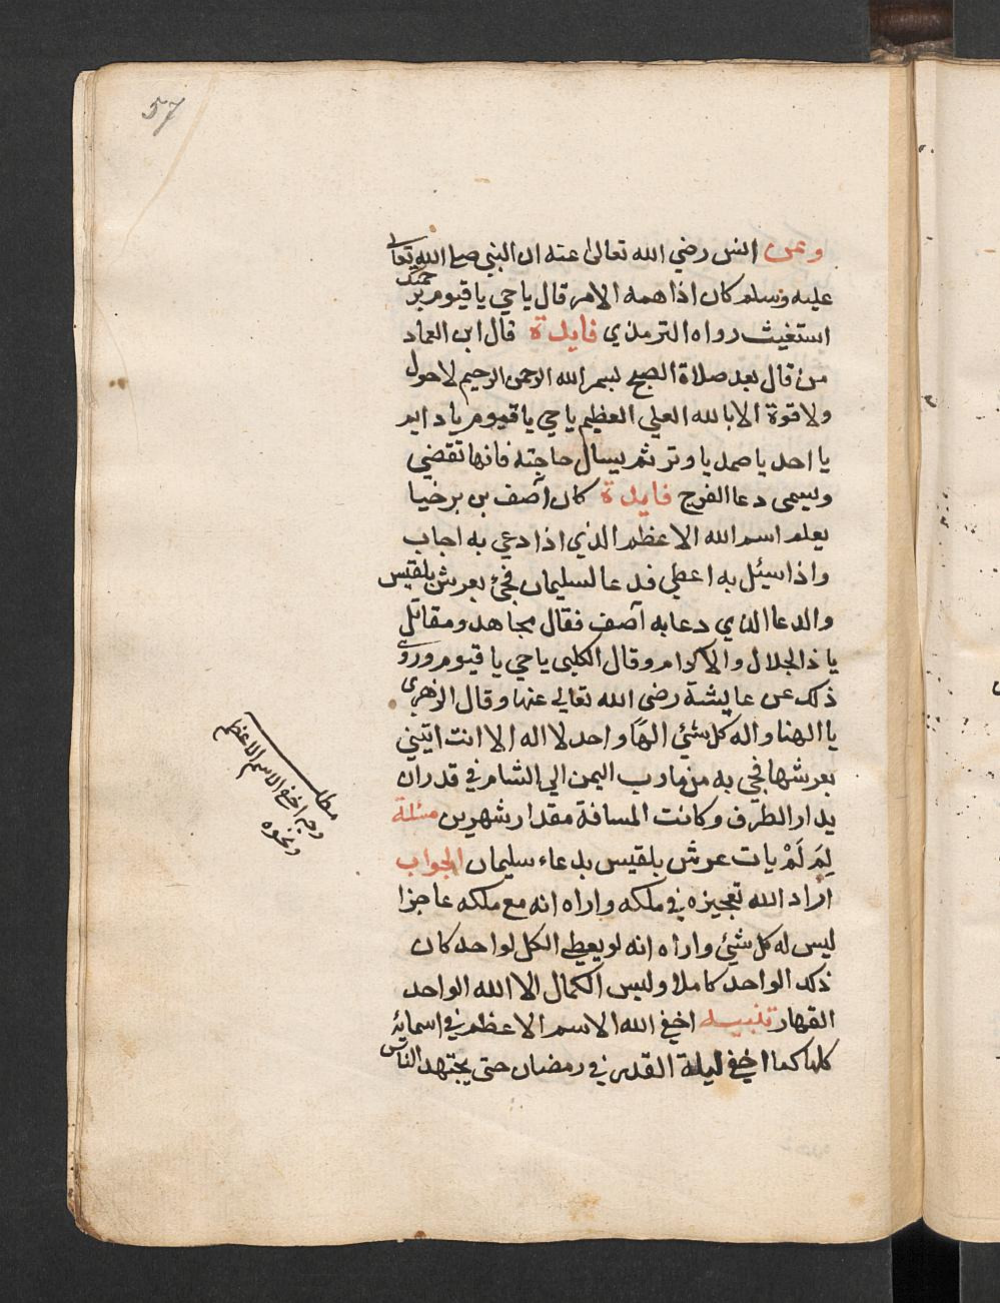 57
وعن انس رضي الله تعالى عنه ان النبي صلى الله تعالى
عليه وسلم كان اذا همه الامر قال يا حي يا قيوم برحمتك
استغيث رواه الترمذي فايدة قال ابن العماد
من قال بعد صلاة الصبح بسم الله الرحمن الرحيم لا حول
ولا قوة الا بالله العلي العظيم يا حي يا قيوم يا دايم
يا احد يا صمد يا وتر ثم يسال حاجته فانها تقضي
ويسمى دعا الفرج فايدة كان آصف بن برخيا
يعلم اسم الله الاعظم الذي اذا دعي به اجاب
واذا سيئل به اعطي فدعا لسليمان فجئ بعرش بلقيس
والدعا الذي دعا به آصف فقال مجاهد ومقاتل
يا ذالجلال والاكرام وقال الكلبي يا حي يا قيوم وروى
ذلك عن عايشة رضي الله تعالى عنها وقال الزهري
يا الهنا واله كل شئي الهًا واحد لا اله الا انت ايتني
بعرشها فجي به من مارب اليمن الي الشام في قدر ان
يدار الطرف وكانت المسافة مقدار شهرين مسئلة
لِمَ لَمْ يات عرش بلقيس بدعاء سليمان الجواب
اراد الله تعجيزه في ملكه واراه انه مع ملكه عاجزا
ليس له كل شيئ واراه انه لو يعطي الكل لواحد كان
ذلك الواحد كاملا وليس الكمال الا الله الواحد
القهار تنبيه اخفي الله الاسم الاعظم في اسمايئه
كلها كما اخفي ليلة القدر في رمضان حتى يجتهد الناس
مطلب
وجه اخفا الاسم الاعظم
ونحوه